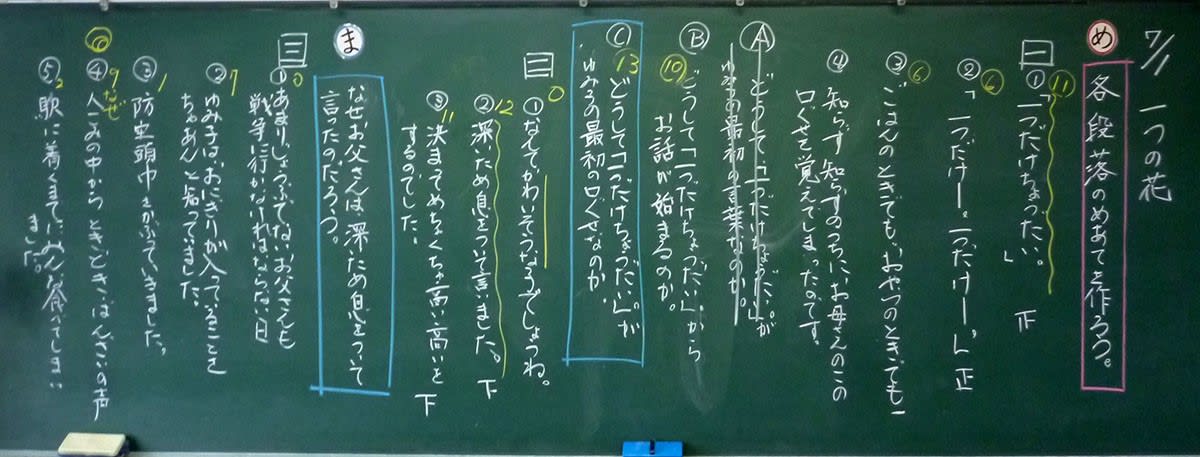 7/1 一つの花
め
各段落のめあてを作ろう。
一
⑪
①「一つだけちょうだい。」
正
⑥
②「一つだけ―。一つだけ―。」正
⑥
③ごはんのときでも、おやつのときでも
④知らず知らずのうちに、お母さんのこの
口ぐせを覚えてしまったのです。
Ⓐどうして「一つだけちょうだい。」が
ゆみ子の最初の言葉なのか。
Ⓑどうして「一つだけちょうだい」から
⑩
お話が始まるのか。
Ⓒ
13
どうして「一つだけちょうだい。」が
ゆみ子の最初の口ぐせなのか
二
0
①なんてかわいそうな子でしょうね。
12
②深いため息をついて言いました。 下
11
③決まってめちゃくちゃ高い高いを
するのでした。 下
ま
なぜお父さんは、深いため息をついて
言ったのだろう。
三
0
①あまりじょうぶでないお父さんも
戦争に行かなければならない日
7
②ゆみ子は、おにぎりが入っていることを
ちゃあんと知っていました。
1
③防空頭巾をかぶっていきました。
⑩
9
なぜ
④人ごみの中から ときどき、ばんざいの声
2
⑤駅に着くまでにみんな食べてしまい
ました。